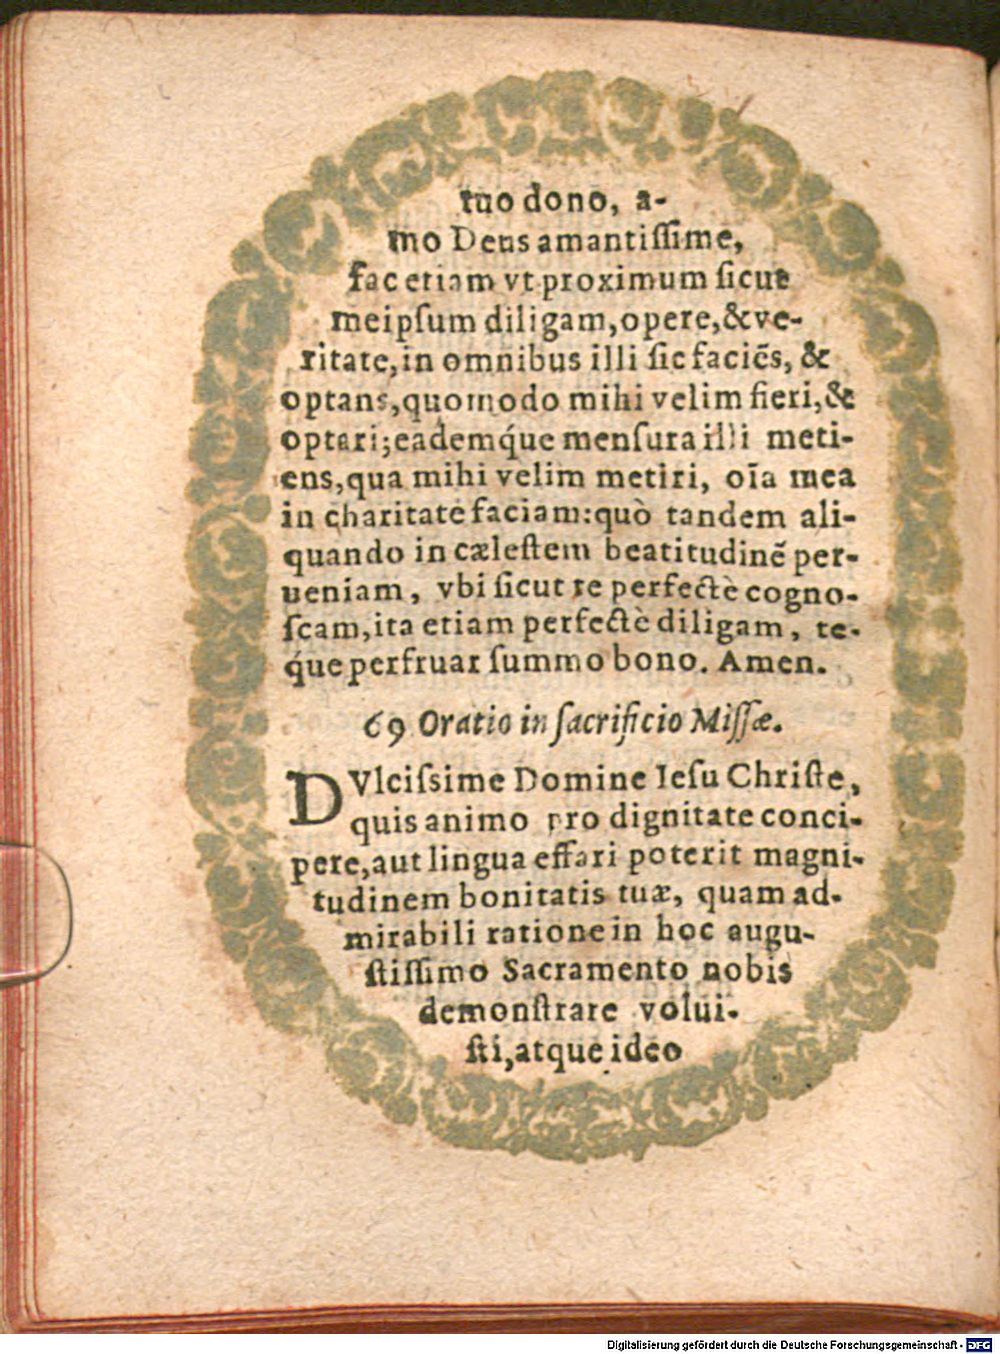 tuo dono, a-
mo Deus amantiſſime,
fac etiam vt proximum ſicut
meipſum diligam, opere, & ve-
ritate, in omnibus illi ſic faciēs, &
optans, quomodo mihi velim fieri, &
optari; eademq́ue menſura illi meti-
ens, qua mihi velim metiri, oīa mea
in charitate faciam: quò tandem ali-
quando in cæleſtem beatitudinē per-
ueniam, vbi ſicut te perfectè cogno-
ſcam, ita etiam perfectè diligam, te-
q́ue perfruar ſummo bono. Amen.
69 Oratio in ſacrificio Miſſæ.
DVlciſsime Domine Ieſu Chriſte,
quis animo pro dignitate conci-
pere, aut lingua effari poterit magni-
tudinem bonitatis tuæ, quam ad-
mirabili ratione in hoc augu-
ſtiſſimo Sacramento nobis
demonſtrare volui-
ſti, atque ideo
Digitalisierung gefördert durch die Deutsche Forschungsgemeinschaft - DFG